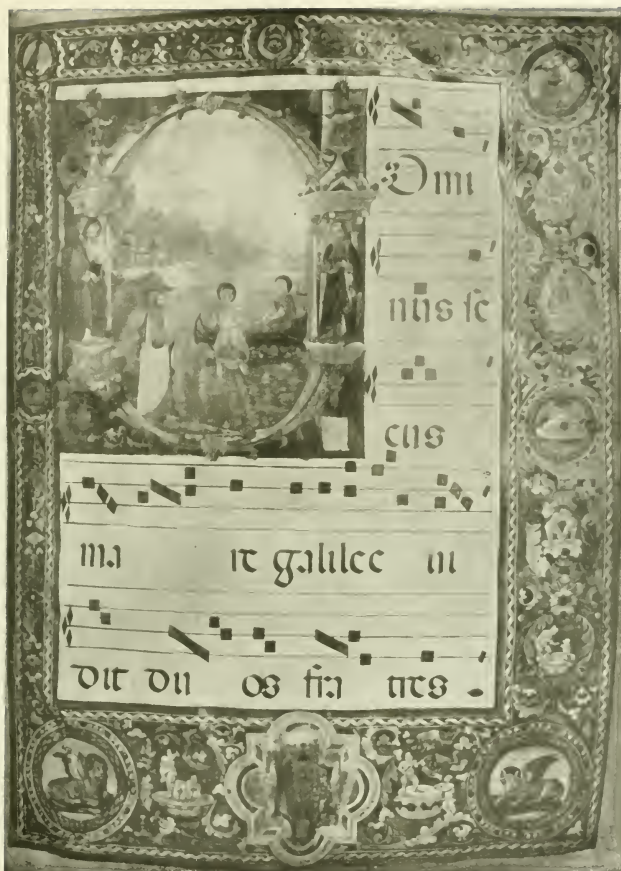 DOmi
nus se
cus
ma re galilee ui
dit du os fra tres